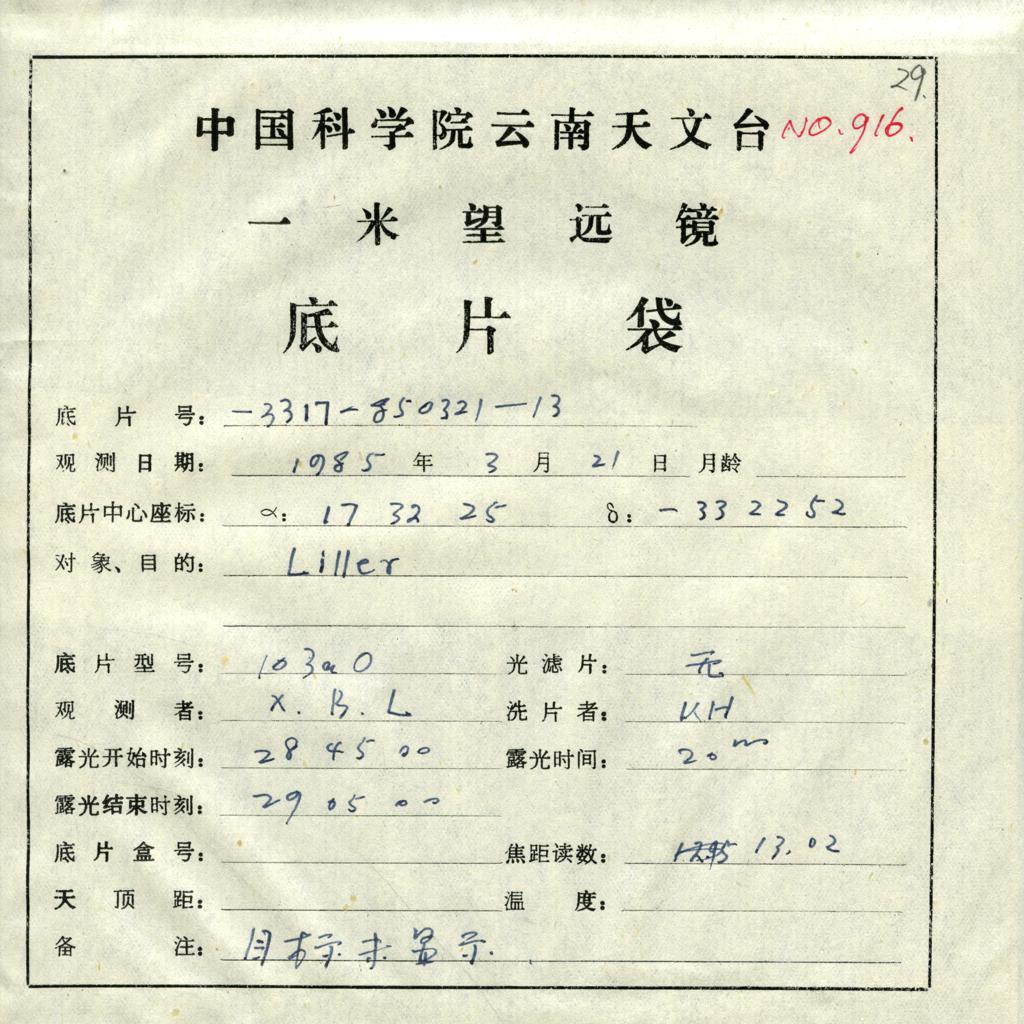 29.
中国科学院云南天文台 NO.916.
一米望远镜
底片袋
底片号: -3317-850321-13
观测日期: 1985 年 3 月 21 日 月龄
底片中心座标: α: 17 32 25 δ: -33 22 52
对象、目的: Liller
底片型号: 103aO 光滤片: 无
观测者: X.B.L 洗片者: KH
露光开始时刻: 28 45 00 露光时间: 20m
露光结束时刻: 29 05 00
底片盒号: 焦距读数: 13.02
天顶距: 温度:
备注: 目标未显示.